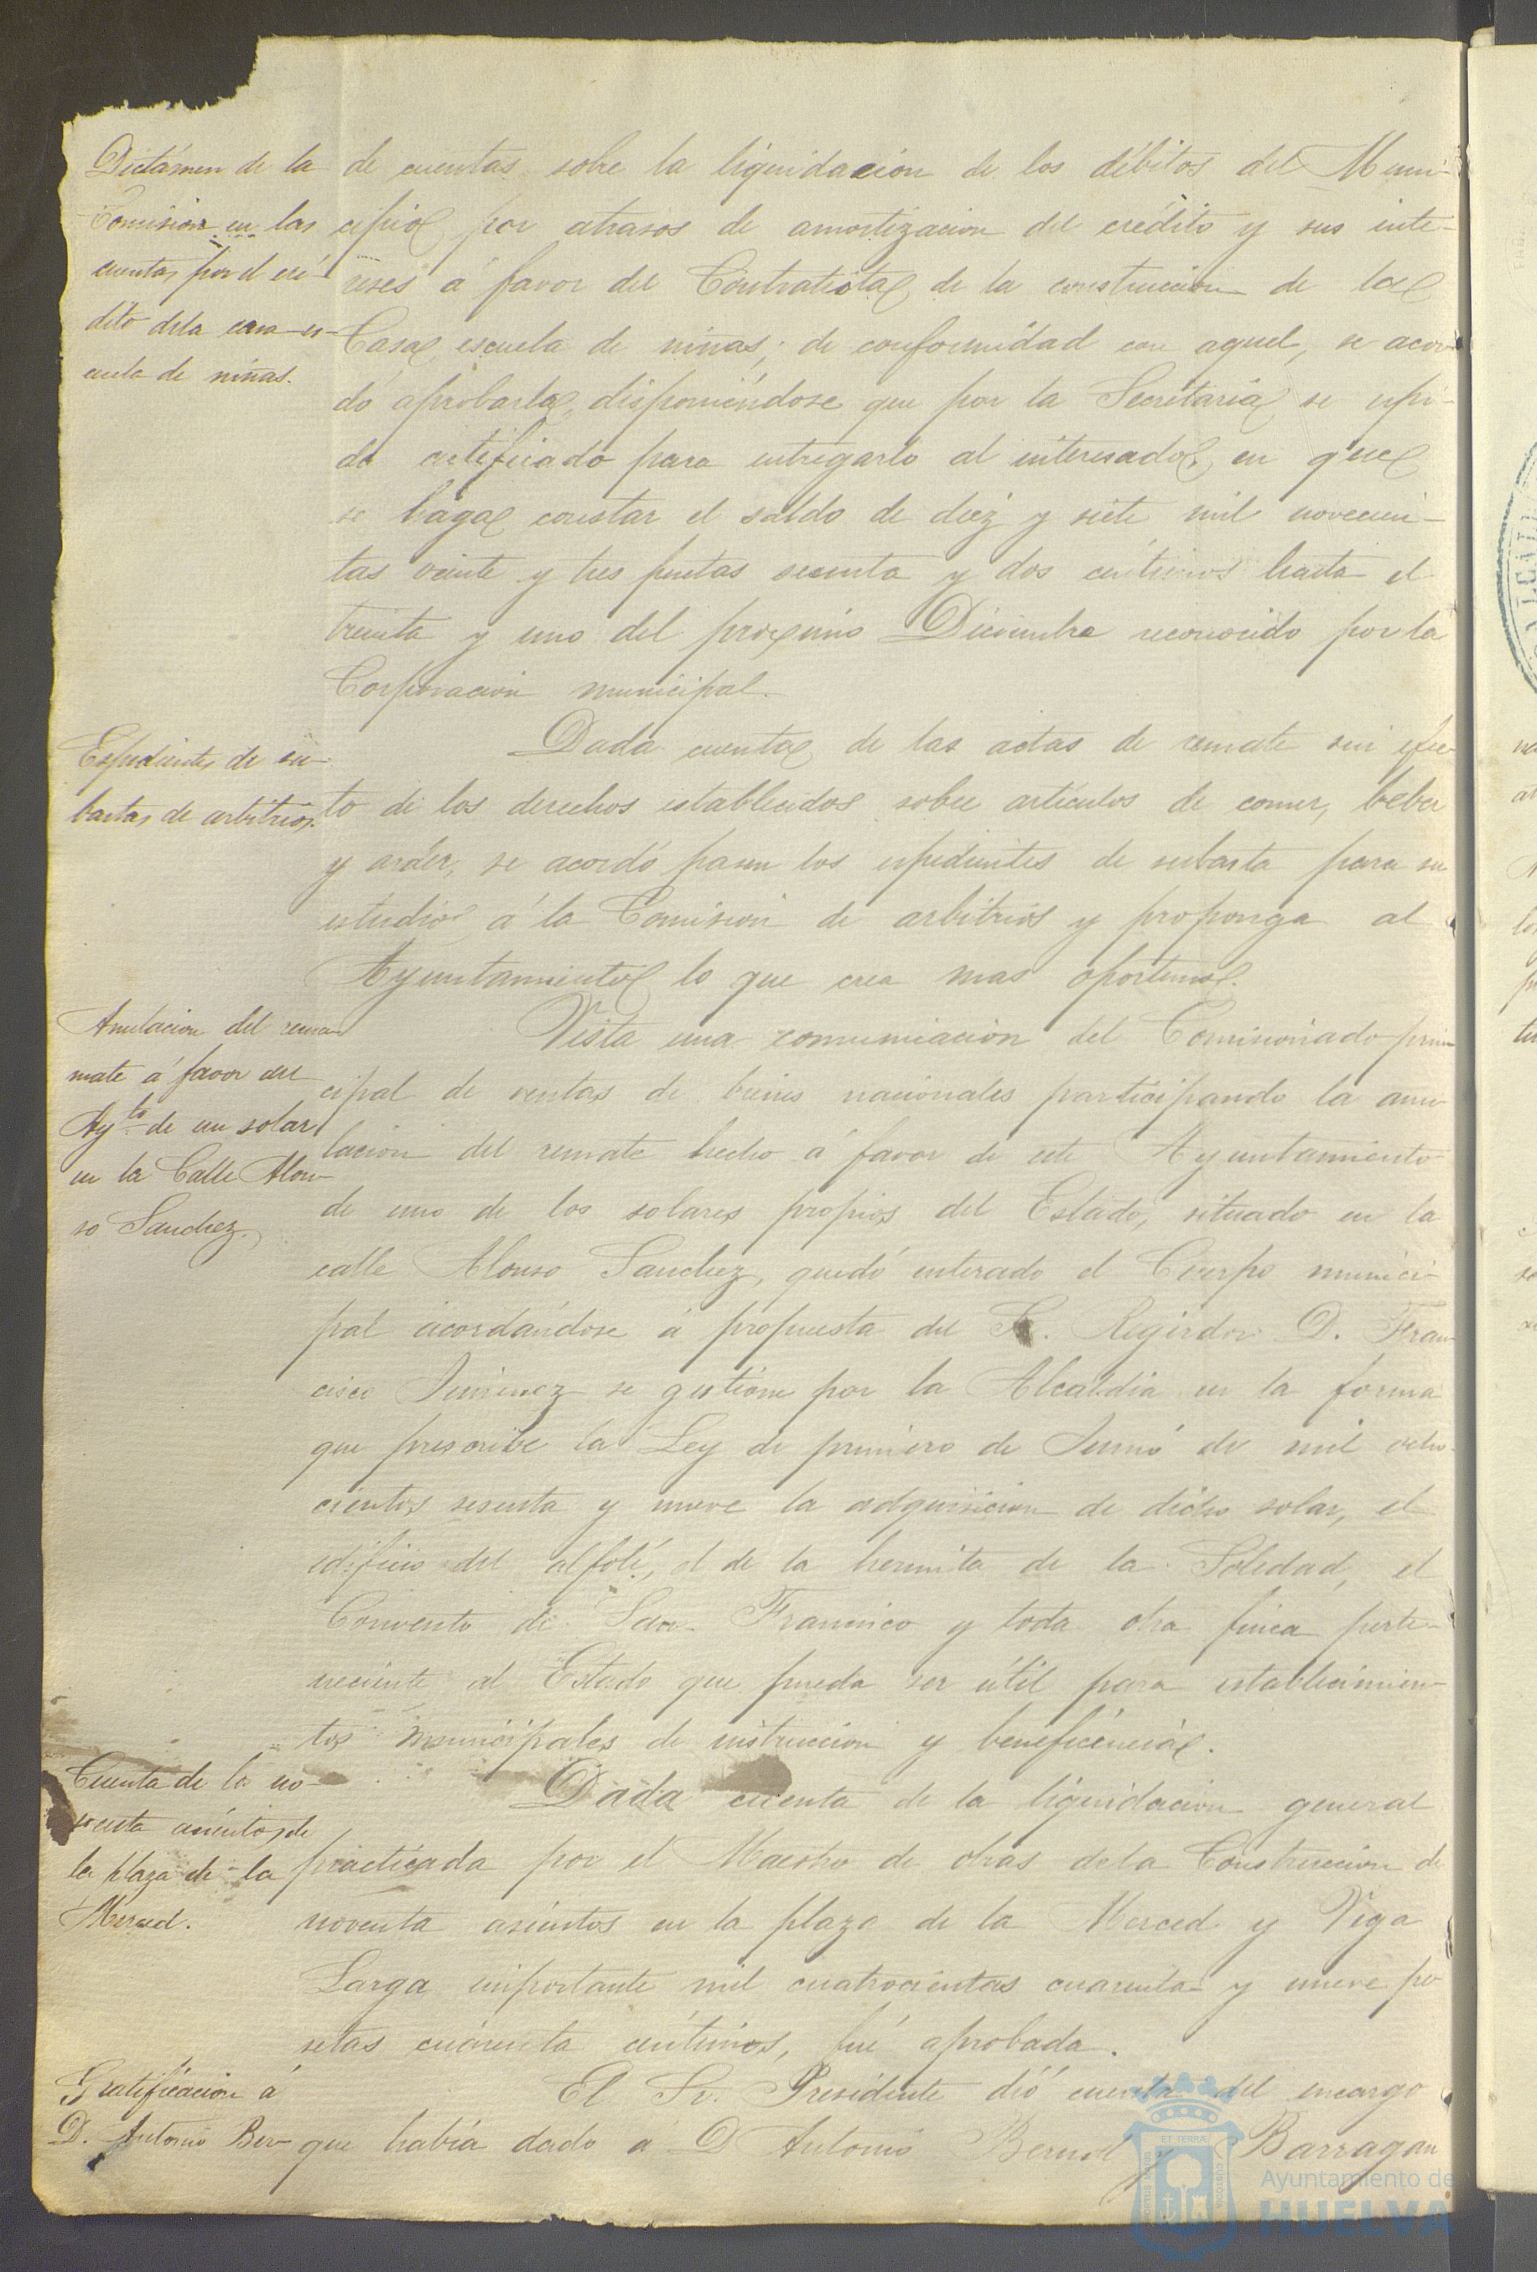 Dictámen de la
Comisión en las
cuentas por el cré-
dito dela casa-es-
cuela de niñas.
de cuentas sobre la liquidación de los débitos del Muni-
cipio por atrasos de amortizacion del crédito y sus inte-
reses á favor del Contratista de la construccion de la
Casa escuela de niñas; de conformidad con aquel, se acor-
dó aprobarla, disponiéndose que por la Secretaría se espi-
da certificado para entregarlo al interesado, en que
se haga constar el saldo de diez y siete mil novecien-
tas veinte y tres pesetas sesenta y dos céntimos hasta el
treinta y uno del proximo Diciembre reconocido por la
Corporacion municipal.
Espedientes de su-
bastas de arbitrios.
Dada cuenta de las actas de remate sin efec-
to de los derechos establecidos sobre artículos de comer, beber
y arder, se acordó pasen los espedientes de subasta para su
estudio á la Comision de arbitrios y proponga al
Ayuntamiento lo que crea mas oportuno.
Anulacion del rema-
mate á favor del
Ayto de un solar
en la Calle Alon-
so Sanchez.
Vista una comunicación del Comisionado prin
cipal de ventas de bienes nacionales participando la anu-
lacion del remate hecho á favor de este Ayuntamiento
de uno de los solares propios del Estado, situado en la
calle Alonso Sanchez, quedó enterado el Cuerpo munici-
pal acordándose á propuesta del Sr. Regidor D. Fran-
cisco Jimenez se gestione por la Alcaldía en la forma
que prescribe la Ley de primero de Junio de mil ocho-
cientos sesenta y nueve la adquisicion de dicho solar, el
edificio del alfolí, el de la hermita de la Soledad, el
Convento de San Francisco y toda otra finca perte-
neciente al Estado que pueda ser útil para establecimien-
tos municipales de instruccion y beneficencia.
Cuenta de la no-
venta asientos de
la plaza de la
Merced.
Dada cuenta de la liquidacion general
practicada por el Maestro de obras dela Construccion de
noventa asientos en la plaza de la Merced y Vega
Larga importante mil cuatrocientas cuarenta y nueve pe
setas cuarenta céntimos, fué aprobada.
Gratificacion á
D. Antonio Ber-
El Sr. Presidente dió cuenta del encargo
que había dado á D Antonio Bernal y Barragan
Ayuntamiento de
HUELVA